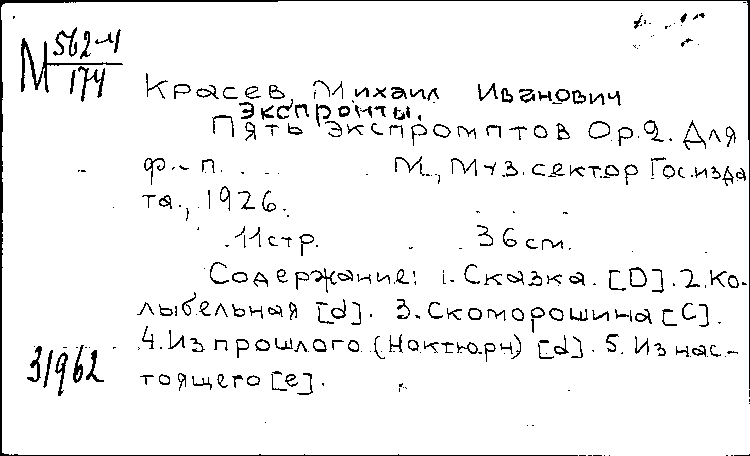 М 562-4
174
Красев, Михаил Иванович
Экспромты.
Пять экспромптов Ор.2. Для
ф.-п. М., Муз. сектор Гос. изда
та., 1926.
11стр. 36см.
Содержание: 1. Сказка. [D]. 2. Ко-
лыбельная [d]. 3. Скоморошина [C].
4. Из прошлого (Ноктюрн) [d]. 5. Из нас-
тоящего [e].
31962